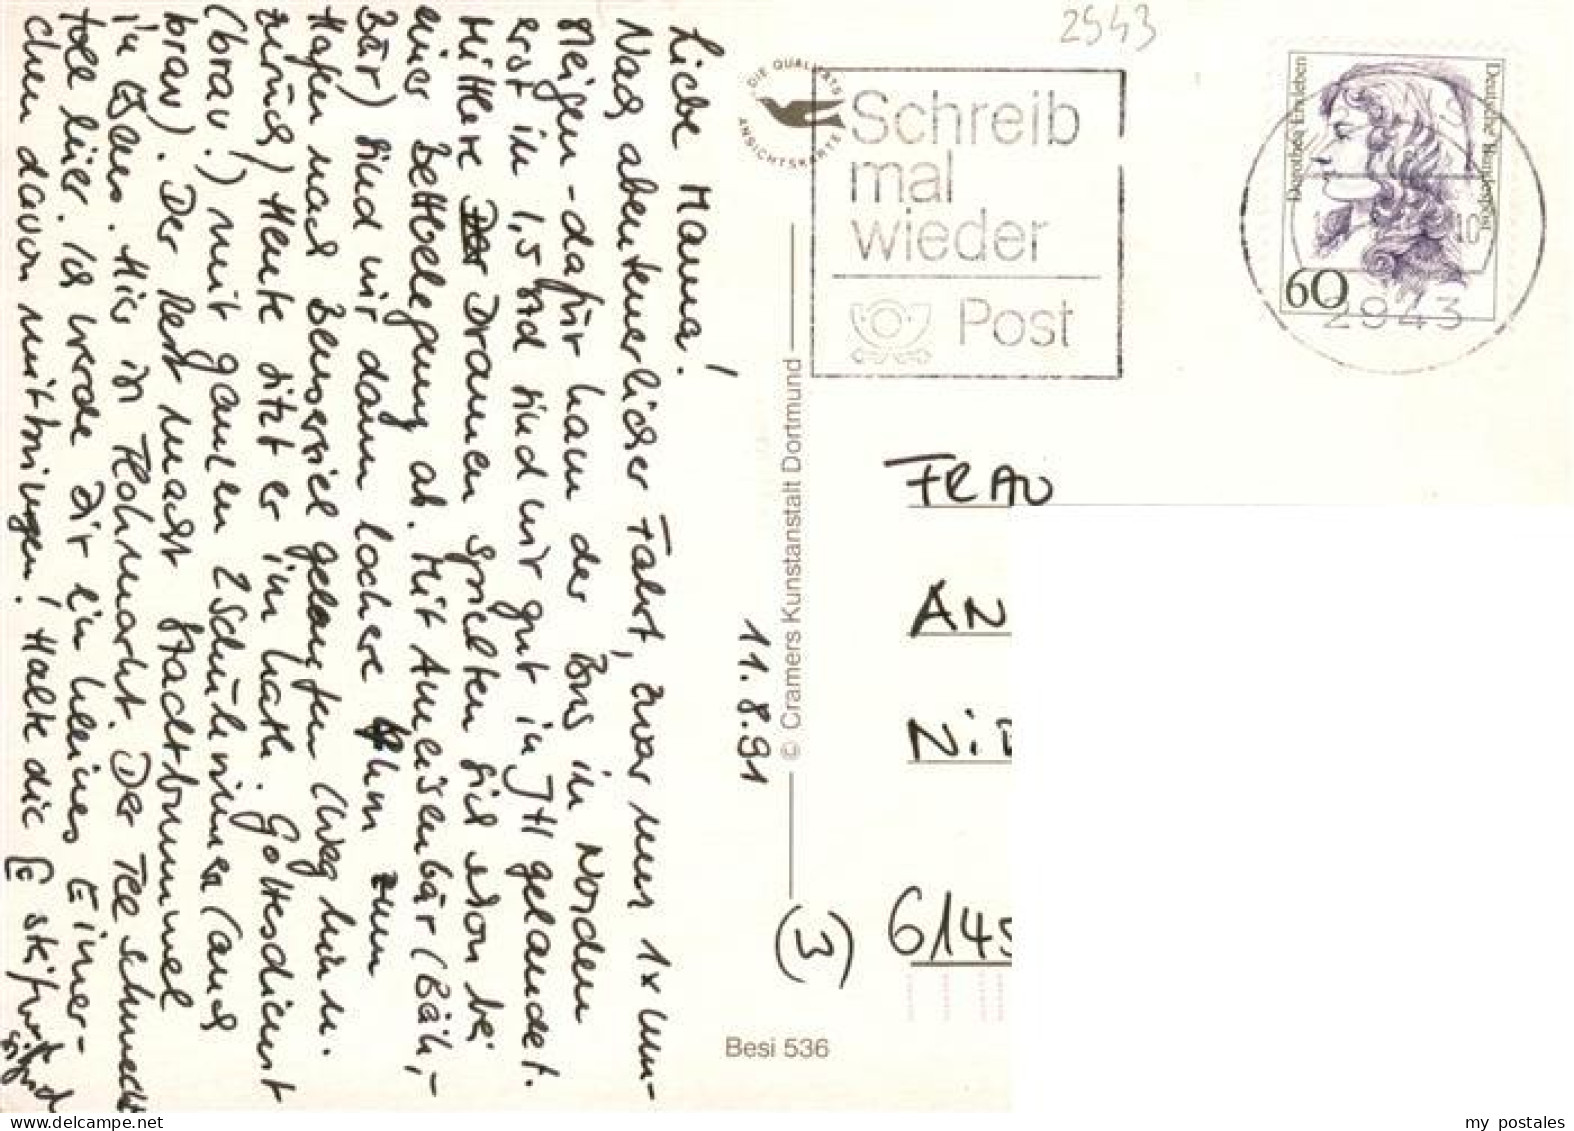 2943
DIE QUALITÄTS
ANSICHTSKARTE
Schreib
mal
wieder
Post
Dorothea Erxleben
Deutsche Bundespost
60
10
2943
Liebe Mama!
Nach abenteuerlicher Fahrt, zwar nun 1x um-
steigen - dafür kam der Bus in Norden
erst in 1,5 Std sind wir gut in JH gelandet.
Mittlere Dramen spielten sich schon bei
einer Bettbelegung ab. Mit Ameisenbär (Bäh,-
Bär) sind wir dann locker zum
Hafen nach Bensersiel gelaufen (Weg hin u.
zurück) Heute sitzt er im Watt. Gottesdienst
(brav!) mit ganzen 2 Schülerinnen (auch
brav). Der Rest macht Stadtbummel
in Esens. Hier ist Flohmarkt. Der Tee schmeckt
toll hier. Ich werde Dir ein kleines Eimer-
chen davon mitbringen! Halte die
11.8.91
© Cramers Kunstanstalt Dortmund
(3)
Besi 536
FRAU
AN
6149
my postales